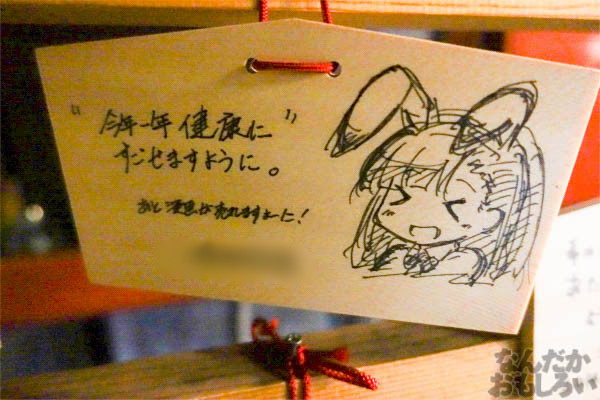 "今年一年健康に"
すごせますように。
あと漫画が売れますよーに!
なんだか
おもしろい